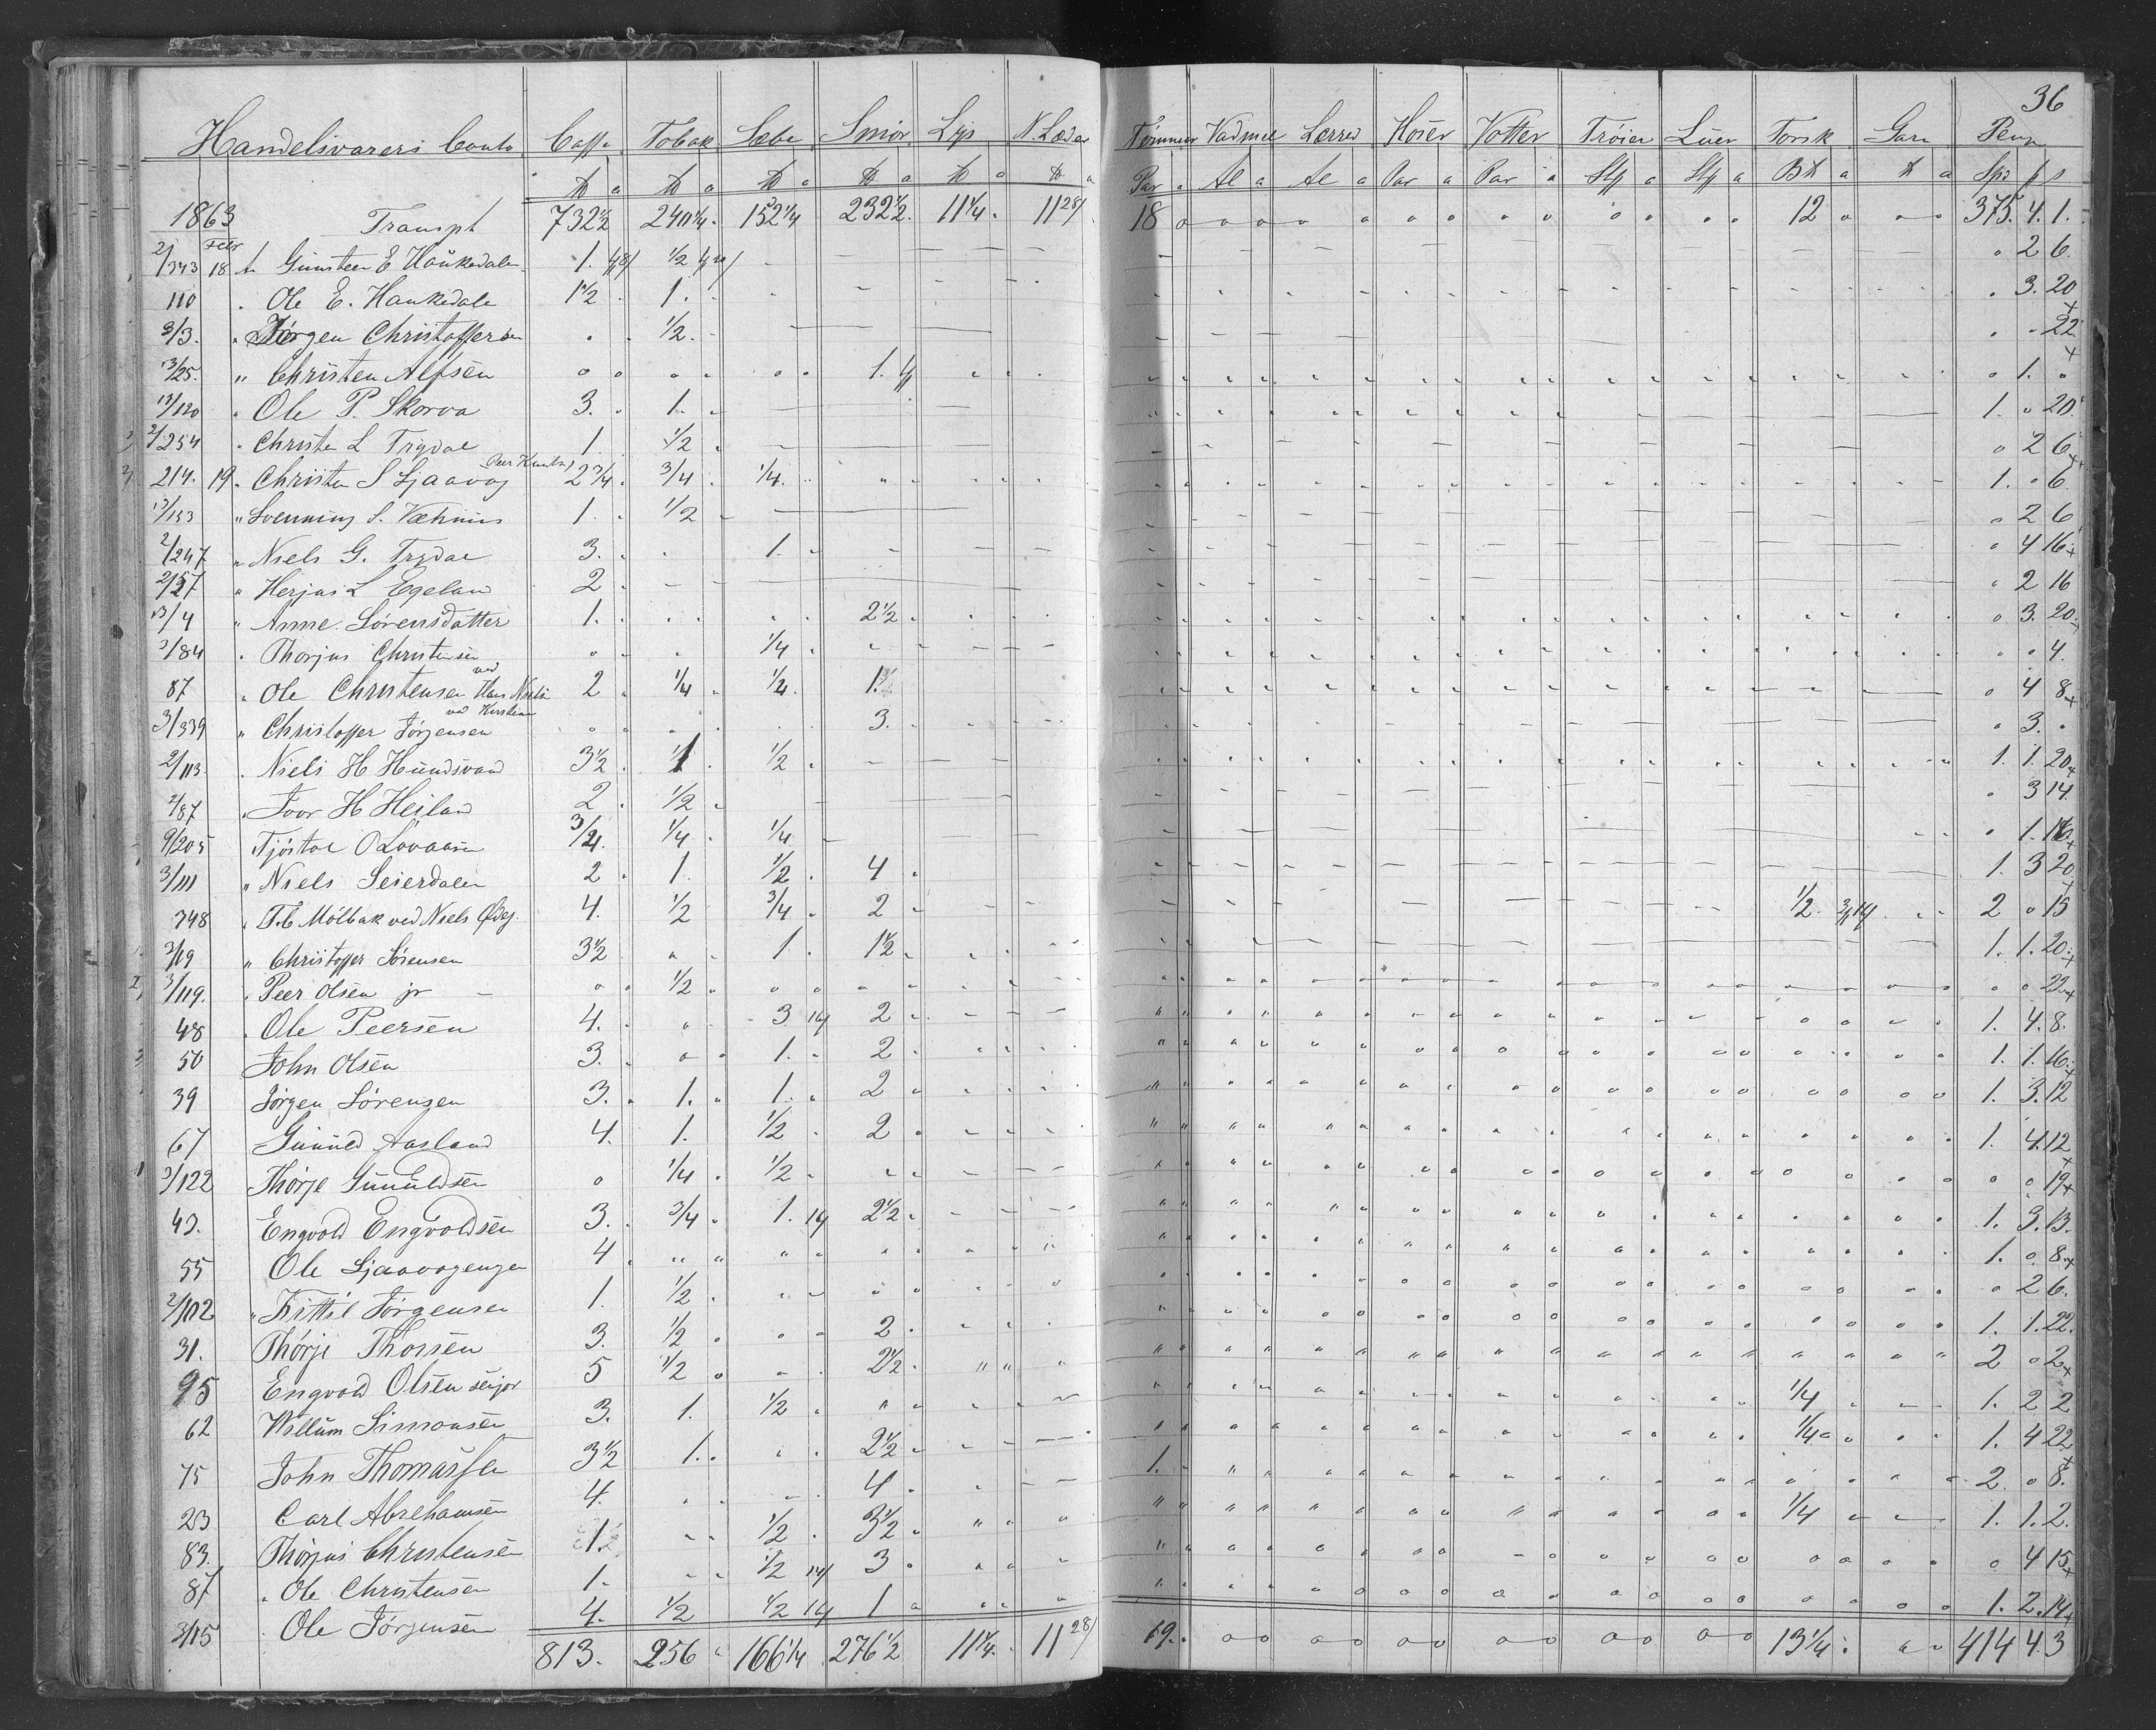 36
Handelsvarers Conto Caffe Tobak Sæbe Smör Lys N. Læder Tømmer Vadmel Lærred Hoser Votter Tröier Luer Torsk Garn Peng
Par a Al a Al a Par a Par a Stk a Stk a
1863 Transpt 732½ 240¼ 152¼ 232½ 11¼ 11 28/ 18 12 375. 4. 1.
Febr
2/343 18 Gunsteen E Haukedalen 1. ½ 2 6.
110 Ole E. Haukedale 1½ 1. 3. 20
3/3. Jörgen Christoffersen ½. 22
13/25. Christen Alfsen 1. 1.
13/120 Ole P. Skorva 3. 1. 1. 20.
2/254 Christen L Trydal 1. ½ 2 6
214. 19 Christen S Ljaavog Peer Knuts 2¾ ¾ ¼. 1. 6
13/153 Svenning S. 1. ½ 2 6
2/247 Niels G. Trydal 3. 1. 4 16
2/57 Herjus L Egeland 2 2 16
13/4 Anne Sörensdatter 1. 2½ 3. 20
3/84 Thorjus Christensen ¼ 4.
87 Ole Christensen ved Hans Nielsen 2 ¼ ¼. 1. 4 8
3/339 Christoffer Jörgensen ved Kirstine 3. 3.
2/113. Niels H Hundsvand 3½ 1 ½ 1. 1. 20
2/87 Ivor H Heiland 2 ½ 3 14
9/205 Tjöstol O Lovaasen ¾. ¼ ¼ 1. 16
3/111 Niels Seierdalen 2 1. ½ 4 1. 3 20
748 T. C Mölbak ved Niels Ødeg. 4. ½ ¾ 2 ½. 2 15
3/19 Christoffer Sörensen 3½ 1. 1½ 1. 1. 20
3/119. Peer Olsen jr ½ 22
48 Ole Peersen 4. 3 14 2 1. 4. 8.
50 John Olsen 3. 1. 2 1. 1. 16
39 Jörgen Sörensen 3. 1. 1. 2 1. 3. 12
67 Gunuld Aasland 4. 1. ½ 2 1. 4. 12
3/122 Thörje Gunuldsen ¼ ½ 19
43. Engvold Engvoldsen 3. ¾ 1. 14 2½ 1. 3. 13.
55 Ole Ljaavogengen 4 1. 8.
2/102 Kittil Jörgensen 1. ½ 2 6.
31. Thörje Thorsen 3. ½ 2 1. 1. 22.
95 Engvold Olsen senjor 5 ½ 2½ 2 2
62 Willum Simonsen 3. 1. ½ ¼ 1. 2 2
75 John Thomassen 3½ 1. 2½ ¼ 1. 4 22
23 Carl Abrehamsen 4. 4 1. 2. 8.
83. Thörjus Christensen 1. ½ 3½ ¼ 1. 1. 2.
87 Ole Christensen 1. ½ 14 3 4 15
3/15 Ole Jörgensen 4. ½ ½ 14 1 1. 2. 14
813. 256 166¼ 276½ 11¼. 11 28/ 19. 13¼ 414 4. 3